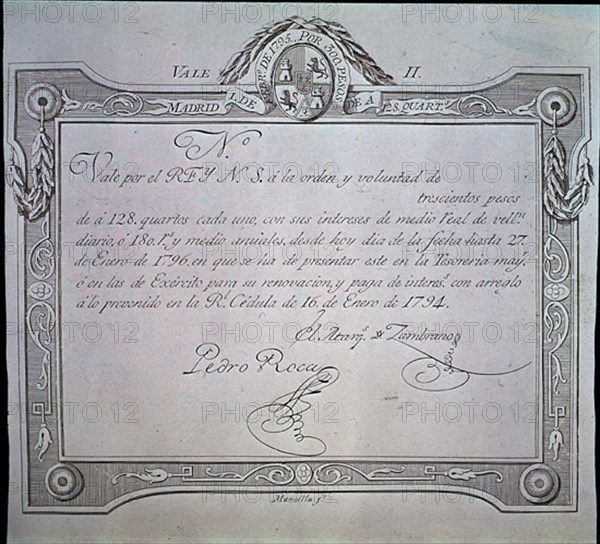 VALE II.
MADRID 1. DE FEBR.º DE 1795. POR 300. PESOS DE A 128. QUART.s
N.º
Vale por el REY N. S. á la orden y voluntad de
trescientos pesos
de á 128. quartos cada uno, con sus intereses de medio real de vell.n
diario, ó 180. r.s y medio anuales, desde hoy dia de la fecha hasta 27.
de Enero de 1796. en que se ha de presentar este en la Tesorería may.r
ó en las de Exército para su renovacion, y paga de interes.s con arreglo
á lo prevenido en la R.l Cédula de 16. de Enero de 1794.
Zambrano
Pedro Roca
Mansilla f.t
PHOTO 12